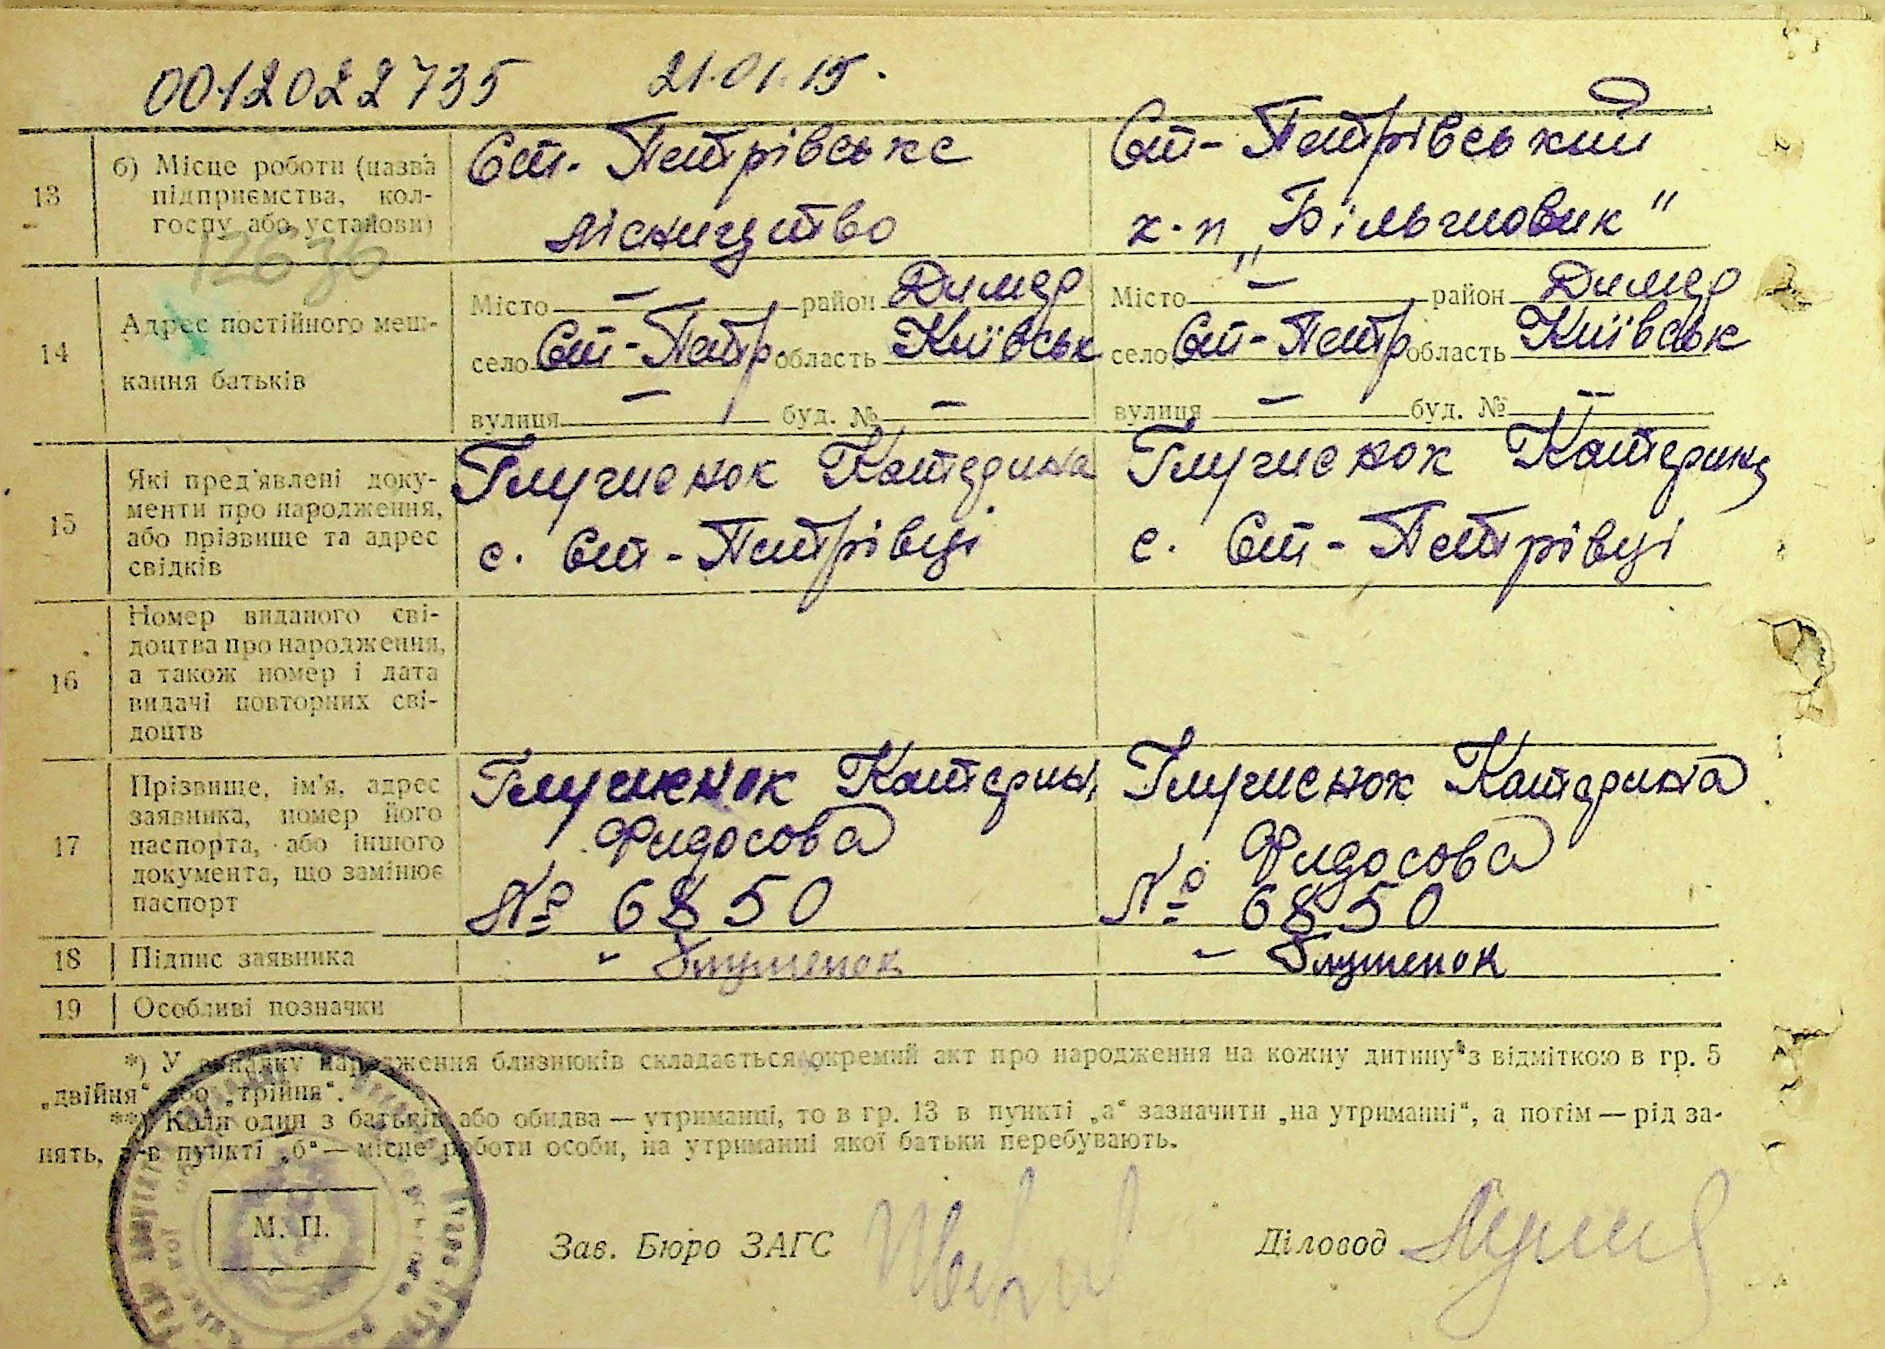 0012022735 21.01.15.
13 б) Місце роботи (назва підприємства, колгоспу або установи)
Ст. Петрівське
лісництво
Ст-Петрівський
к-п „Більшовик"
12636
14 Адрес постійного мешкання батьків
Місто — район Димер
село Ст-Петр область Київськ
вулиця — буд. № —
Місто — район Димер
село Ст-Петр область Київськ
вулиця — буд. № —
15 Які пред'явлені документи про народження, або прізвище та адрес свідків
Глушенок Катерина
с. Ст-Петрівці
Глушенок Катерина
с. Ст-Петрівці
16 Номер виданого свідоцтва про народження, а також номер і дата видачі повторних свідоцтв
17 Прізвище, ім'я, адрес заявника, номер його паспорта, або іншого документа, що замінює паспорт
Глушенок Катерин
Фидосова
№ 6850
Глушенок Катерина
Фидосова
№ 6850
18 Підпис заявника
- Глушенок
- Глушенок
19 Особливі позначки
*) У випадку народження близнюків складається окремий акт про народження на кожну дитину з відміткою в гр. 5
„двійня" або „трійня".
**) Коли один з батьків або обидва — утриманці, то в гр. 13 в пункті „а" зазначити „на утриманні", а потім — рід за-
нять, а в пункті „б" — місце роботи особи, на утриманні якої батьки перебувають.
М. П.
Зав. Бюро ЗАГС
Діловод